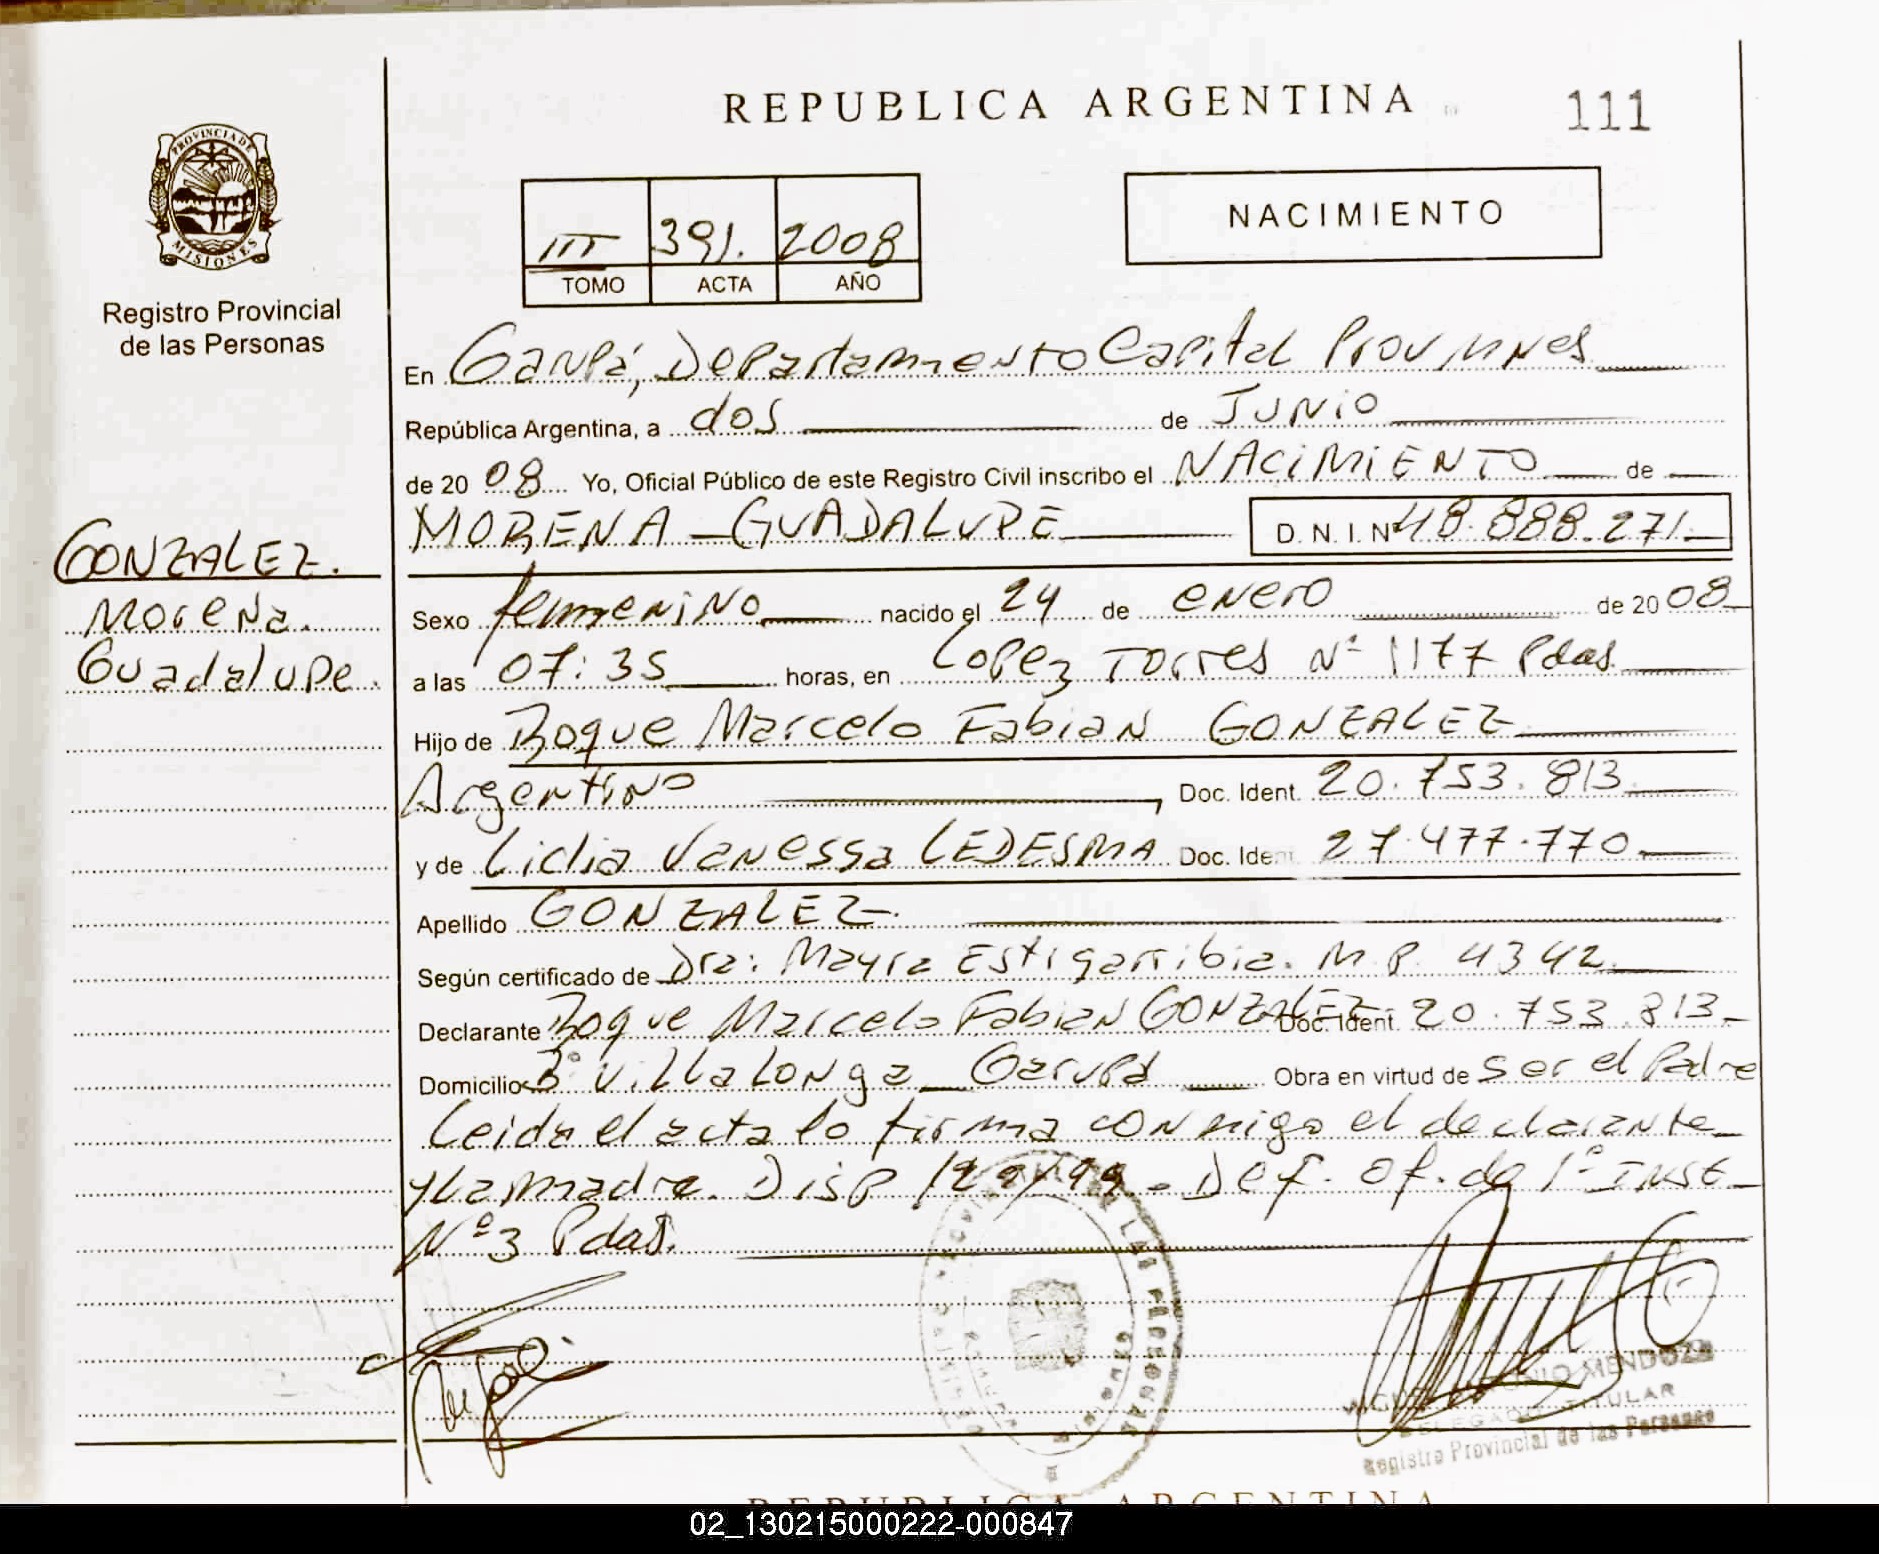 REPUBLICA ARGENTINA
111
PROVINCIA DE
MISIONES
Registro Provincial
de las Personas
III 391. 2008
TOMO ACTA AÑO
NACIMIENTO
En Garupá, Departamento Capital Prov Mnes
República Argentina, a dos de Junio
de 20 08 Yo, Oficial Público de este Registro Civil inscribo el NACIMIENTO de
MORENA GUADALUPE D.N.I. Nº 48.888.271
GONZALEZ.
Morena.
Guadalupe.
Sexo femenino nacido el 24 de enero de 20 08
a las 07:35 horas, en Lopez Torres Nº 1177 Pdas.
Hijo de Roque Marcelo Fabian GONZALEZ
Argentino, Doc. Ident. 20.753.813
y de Lidia Vanessa LEDESMA Doc. Ident. 27.477.770
Apellido GONZALEZ.
Según certificado de Dra: Mayra Estigarribia. M.P. 4342
Declarante Roque Marcelo Fabian GONZALEZ Doc. Ident. 20.753.813
Domicilio Bº Villalonga Garupá Obra en virtud de ser el Padre
Leida el acta lo firma conmigo el declarante
y la madre. Disp 129/99 - Def. of. de 1º Inst
Nº 3 Pdas.
LAS PERSONAS
MENDOZA
DELEGADO TITULAR
Registro Provincial de las Personas
REPUBLICA ARGENTINA
02_130215000222-000847